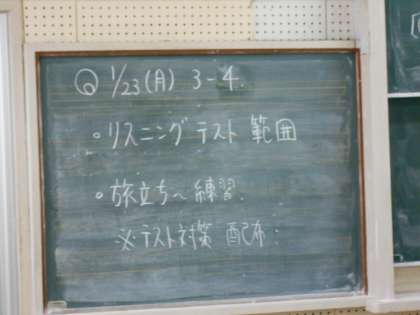 ◎ 1/23(月) 3-4.
・リスニングテスト 範囲
・旅立ちへ 練習.
※テスト対策 配布: